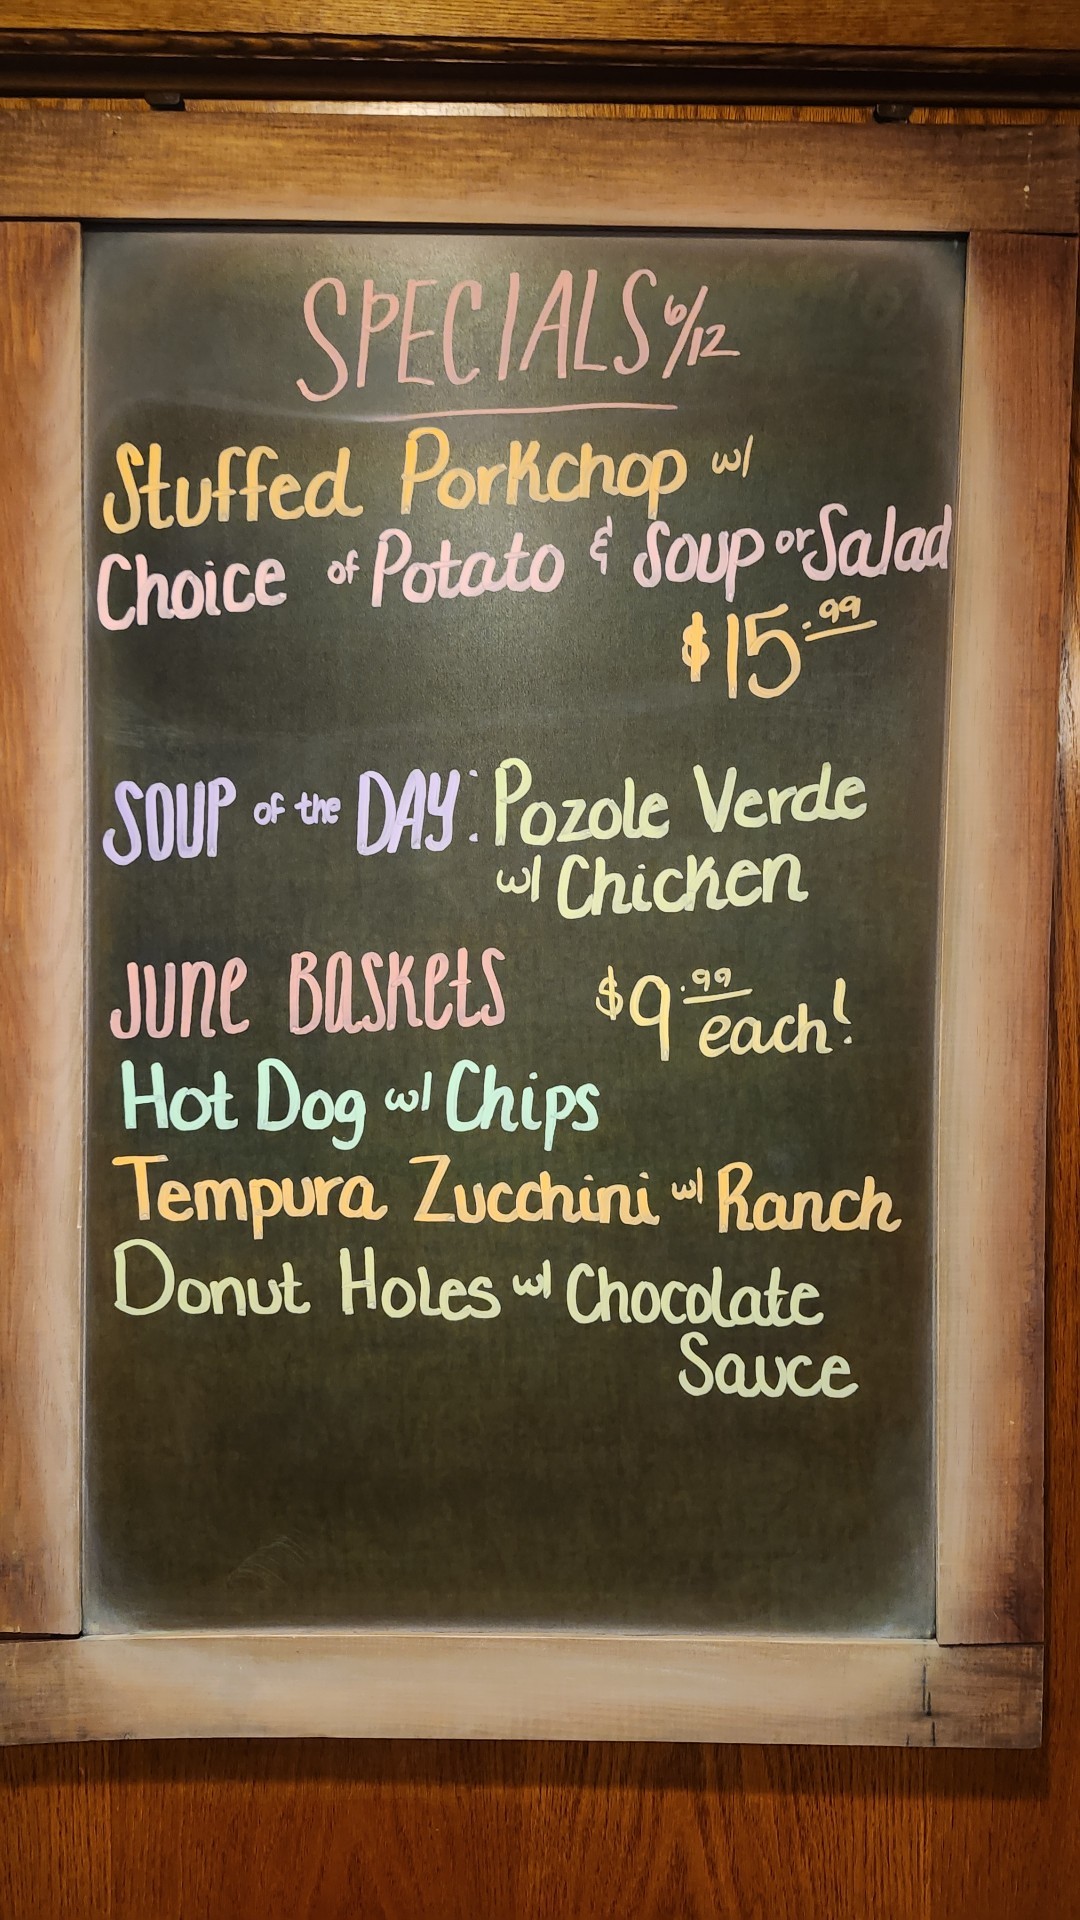 SPECIALS 6/12
Stuffed Porkchop w/
Choice of Potato & Soup or Salad
$15.99
SOUP of the DAY: Pozole Verde
w/ Chicken
JUNE BASKETS $9.99 each!
Hot Dog w/ Chips
Tempura Zucchini w/ Ranch
Donut Holes w/ Chocolate
Sauce